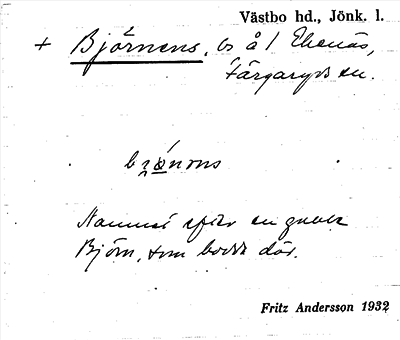 Västbo hd., Jönk. l.
+ Björnens, ls å 1 Ekenäs,
Färgaryds sn.
Namnet efter en gubbe
Björn, som bodde där.
Fritz Andersson 1932